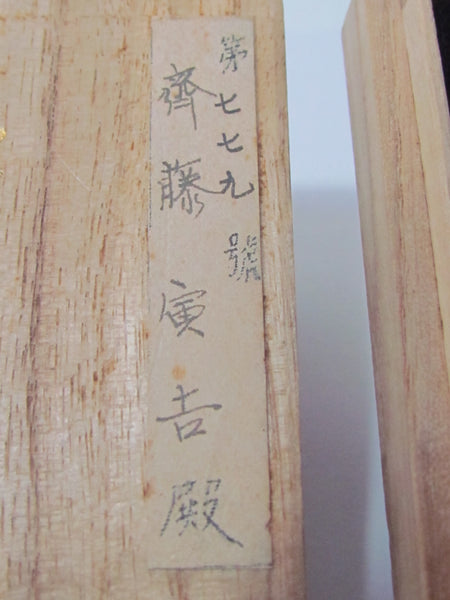 第七七九號
齊藤寅吉殿